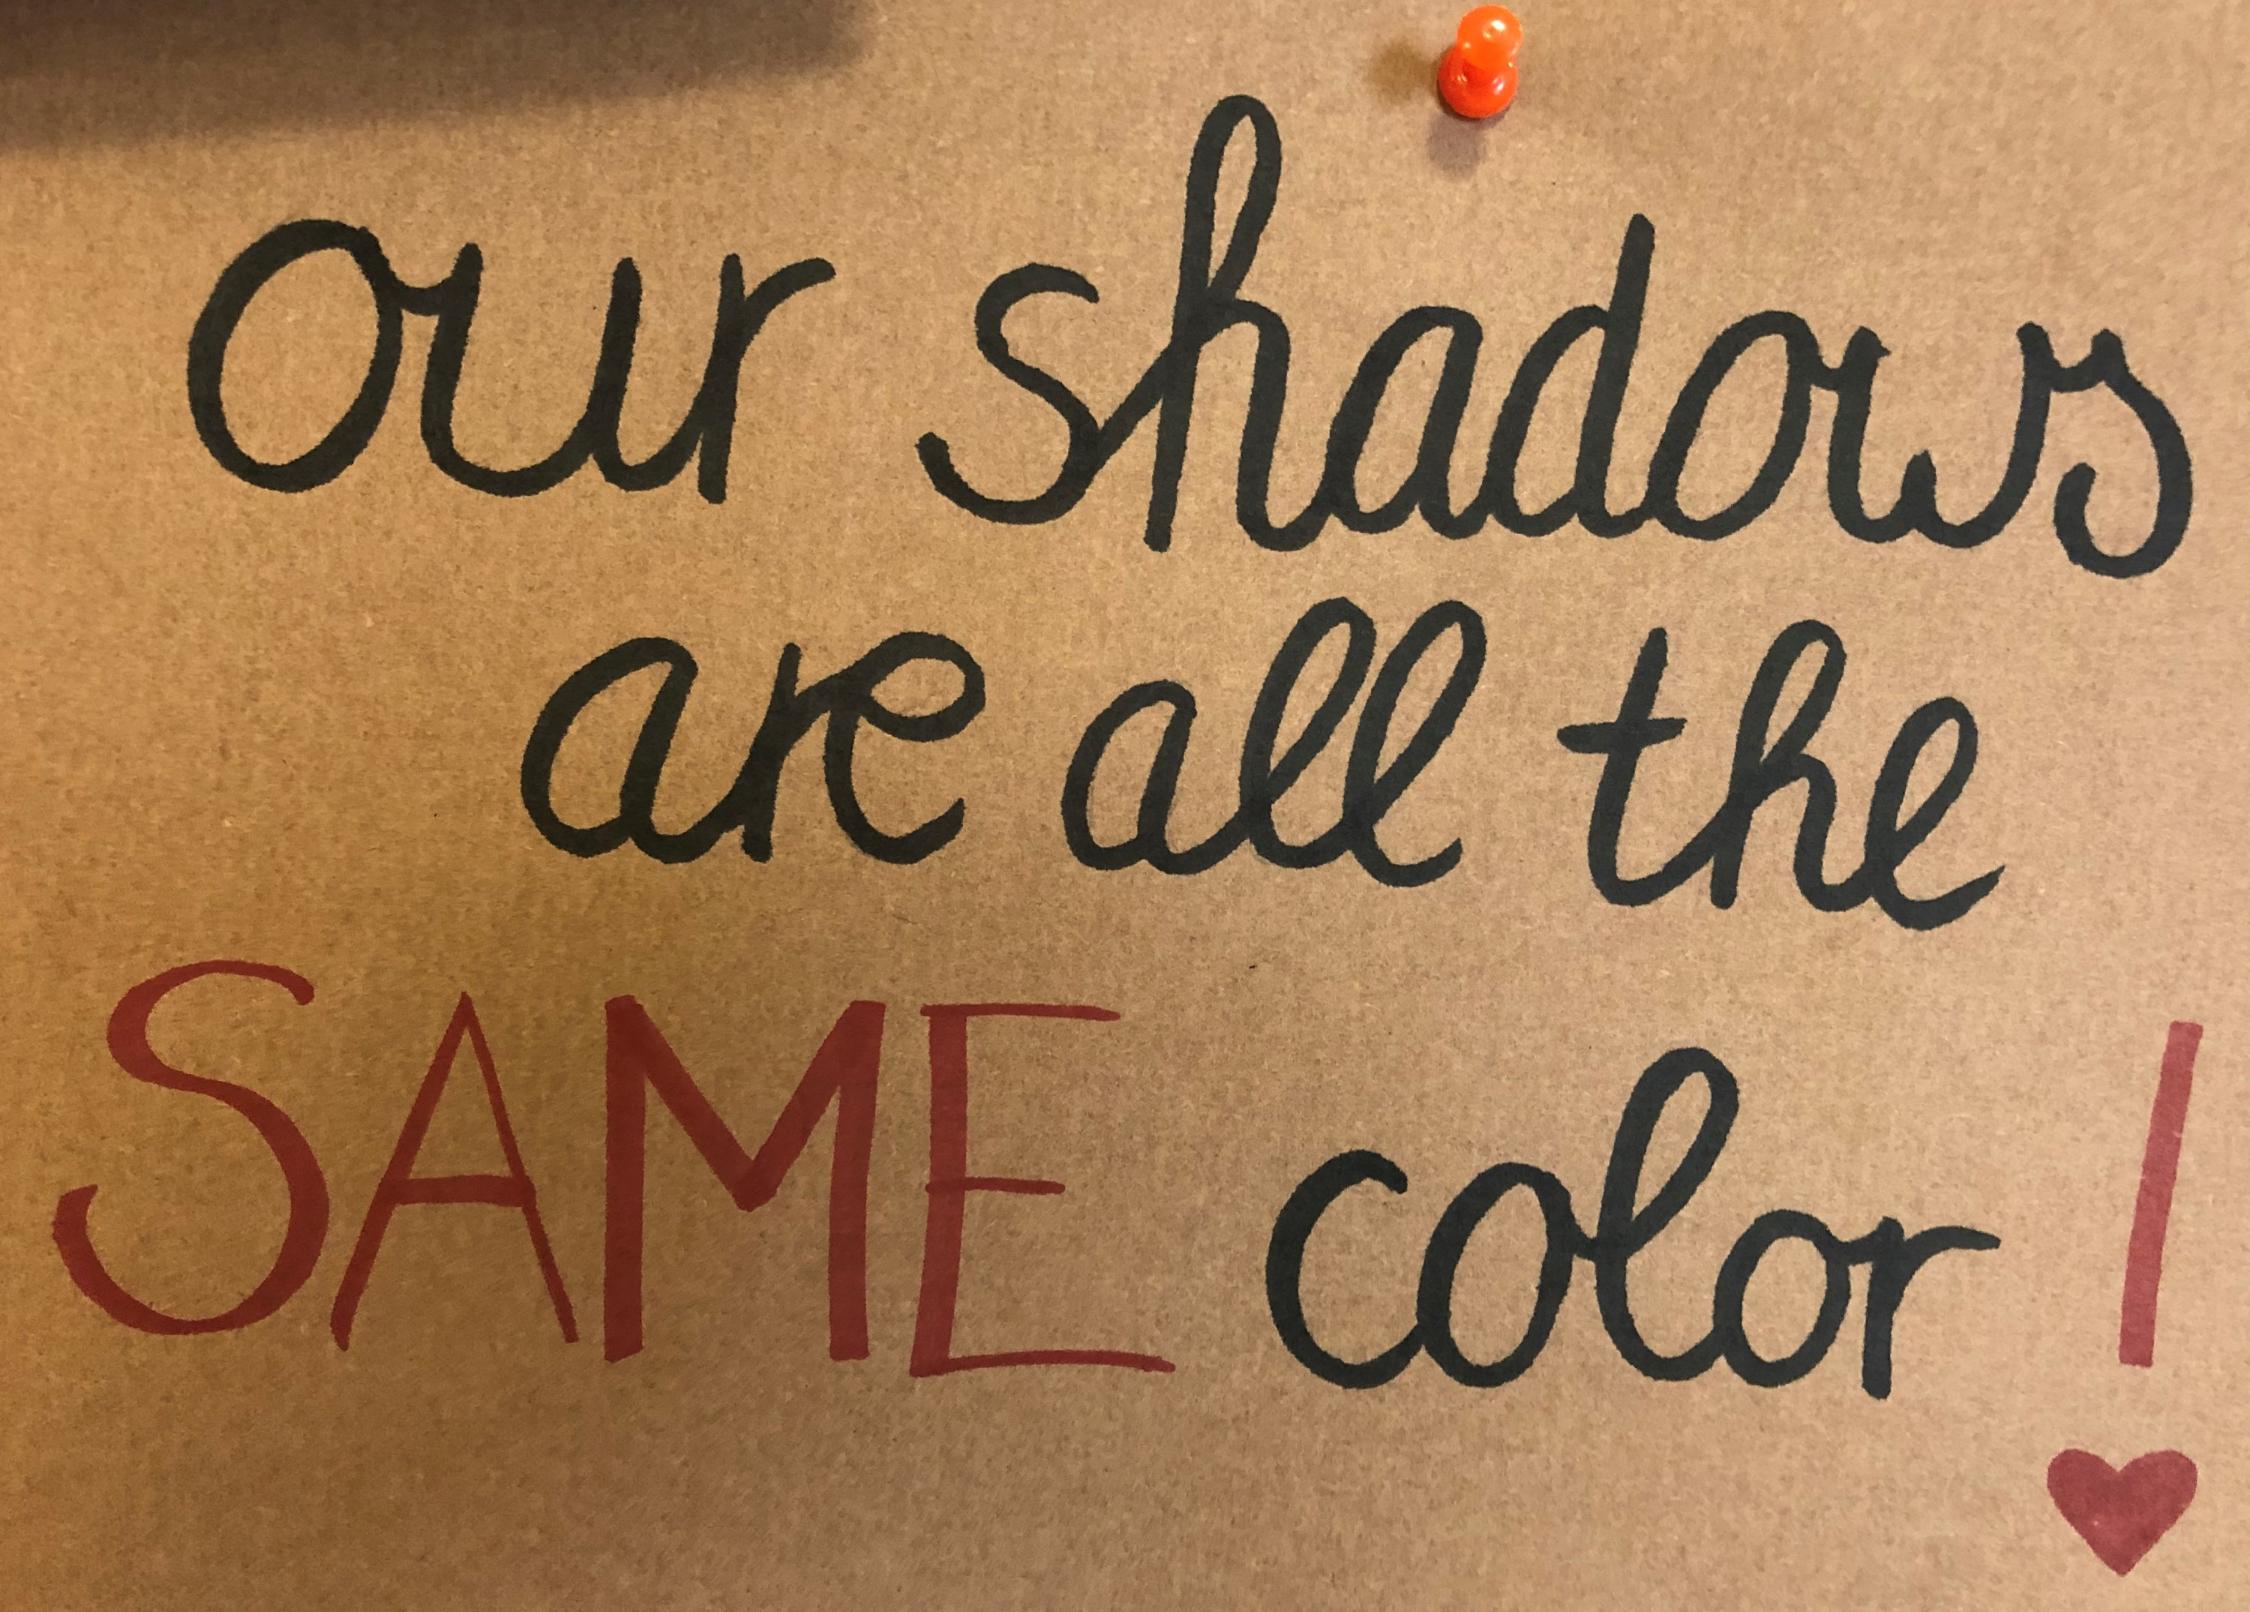 our shadows
are all the
SAME color!